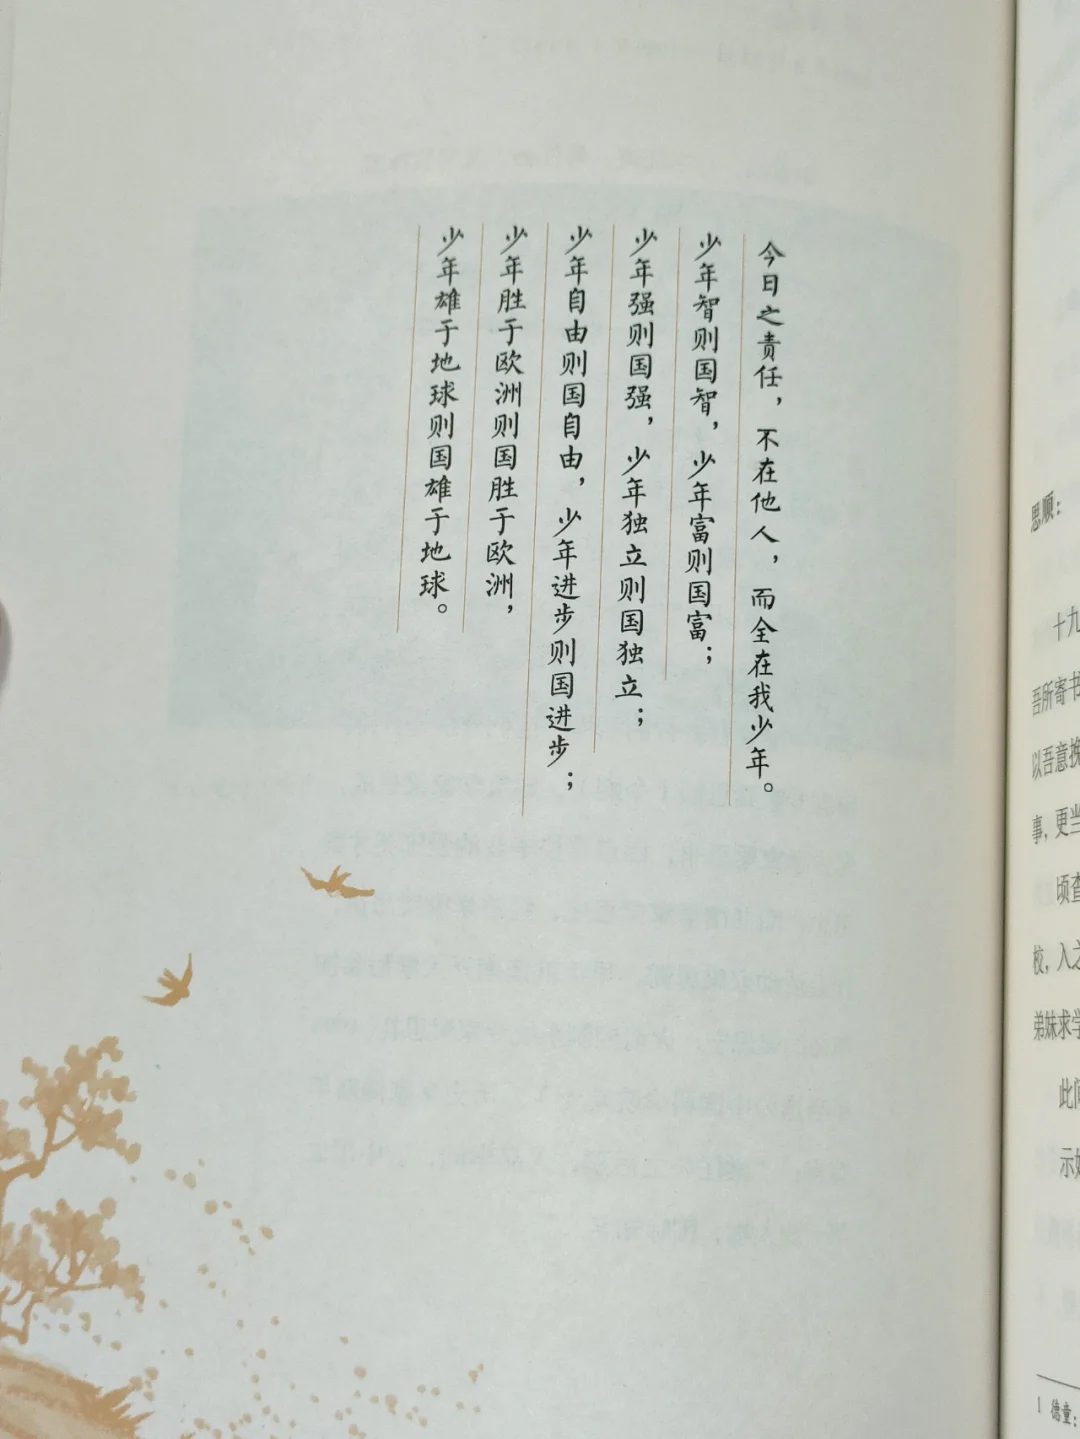 今日之责任，不在他人，而全在我少年。
少年智则国智，少年富则国富；
少年强则国强，少年独立则国独立；
少年自由则国自由，少年进步则国进步；
少年胜于欧洲则国胜于欧洲，
少年雄于地球则国雄于地球。
思顺：
十九
吾所寄书
以吾意挽
事，更当
顷查
校，入之
弟妹求学
此间
示如
1 德童：